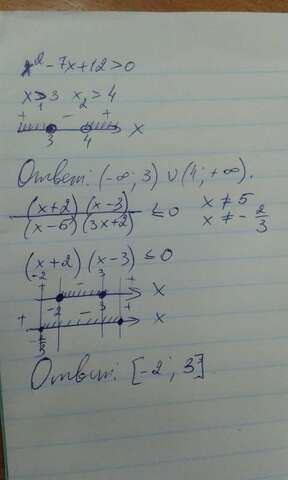 x²-7x+12>0
x₁>3 x₂>4
+ - +
3 4 x
Ответ: (-∞; 3) ∪ (4; +∞).
(x+2)(x-3)/(x-5)(3x+2) ≤0 x≠5
x≠-2/3
(x+2)(x-3)≤0
-2 - 3 +
-2 3 x
+ - + x
Ответ: [-2; 3]